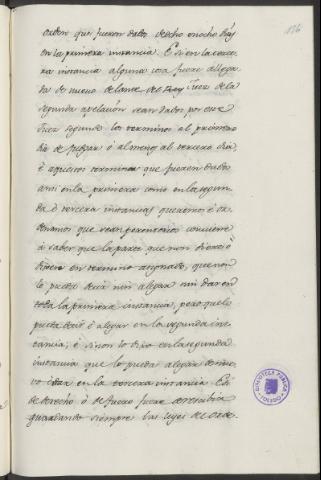 186
orden que fueron dados de dcho onocho Dias
en la primera instancia. E si en la terce-
ra instancia alguna cosa fuere allega-
da de nuevo delante del Juez de la
segunda apelación sean dados por este
Juez segundo los terminos al primero
dia de Juzgar ó al menos al tercero dia,
é aquesos terminos que fueren dados
ansi en la primera como en la segun-
da é tercera instancias queremos é or-
denamos que sean perentorios conviene
á saber que la parte que non dixere ó
dixere en termino asignado, que non
lo pueda decir nin alegar nin dar en
toda la primera instancia, pero que lo
pueda decir é alegar en la segunda ins-
tancia; é si non lo dixo en la segunda
instancia que lo pueda alegar de nue-
vo en la tercera instancia. E si
de derecho ó de fuero fuere
guardando siempre las leyes de
BIBLIOTECA PUBLICA
TOLEDO